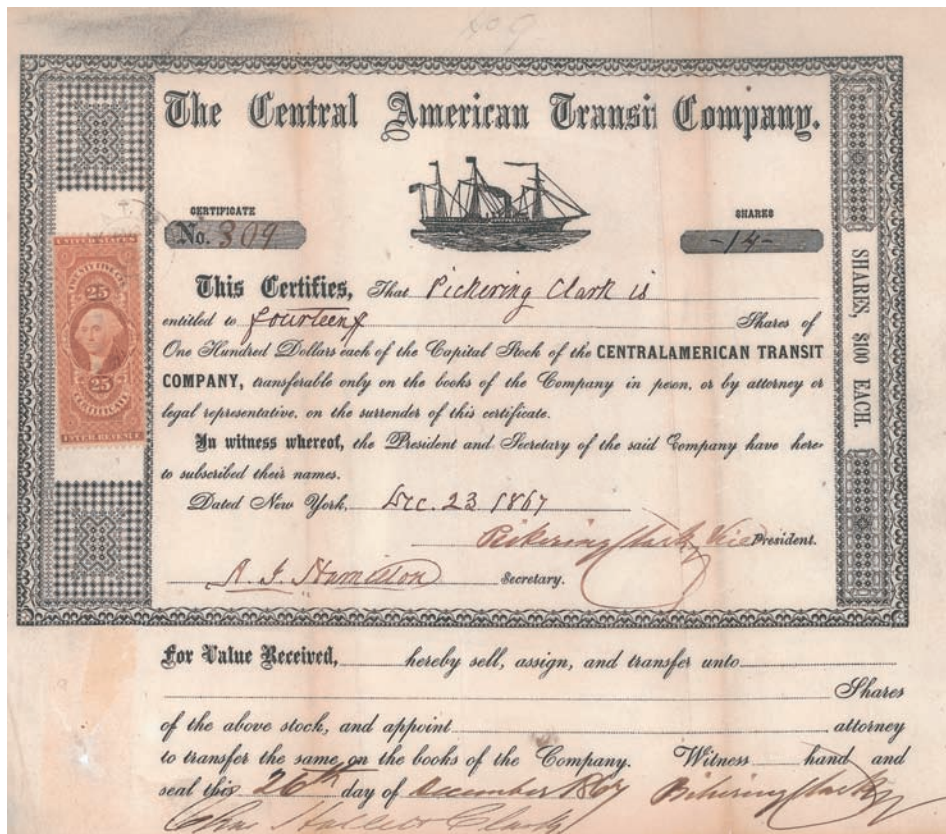 The Central American Transit Company.
CERTIFICATE
No. 309
SHARES
-14-
UNITED STATES
TWENTY FIVE CTS
25
25
CERTIFICATE
INTER REVENUE
SHARES, $100 EACH.
This Certifies, That Pickering Clark is
entitled to fourteen Shares of
One Hundred Dollars each of the Capital Stock of the CENTRALAMERICAN TRANSIT
COMPANY, transferable only on the books of the Company in peron, or by attorney or
legal representative, on the surrender of this certificate.
In witness whereof, the President and Secretary of the said Company have here-
to subscribed their names.
Dated New York, Dec. 23 1867
Pickering Clark Vice President.
Secretary.
For Value Received, hereby sell, assign, and transfer unto
Shares
of the above stock, and appoint attorney
to transfer the same on the books of the Company. Witness hand and
seal this 26th day of December 1867 Pickering Clark
Clark